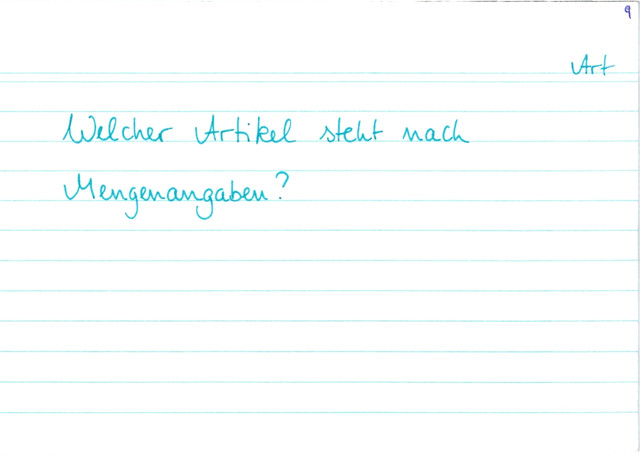 9
Art
Welcher Artikel steht nach
Mengenangaben?